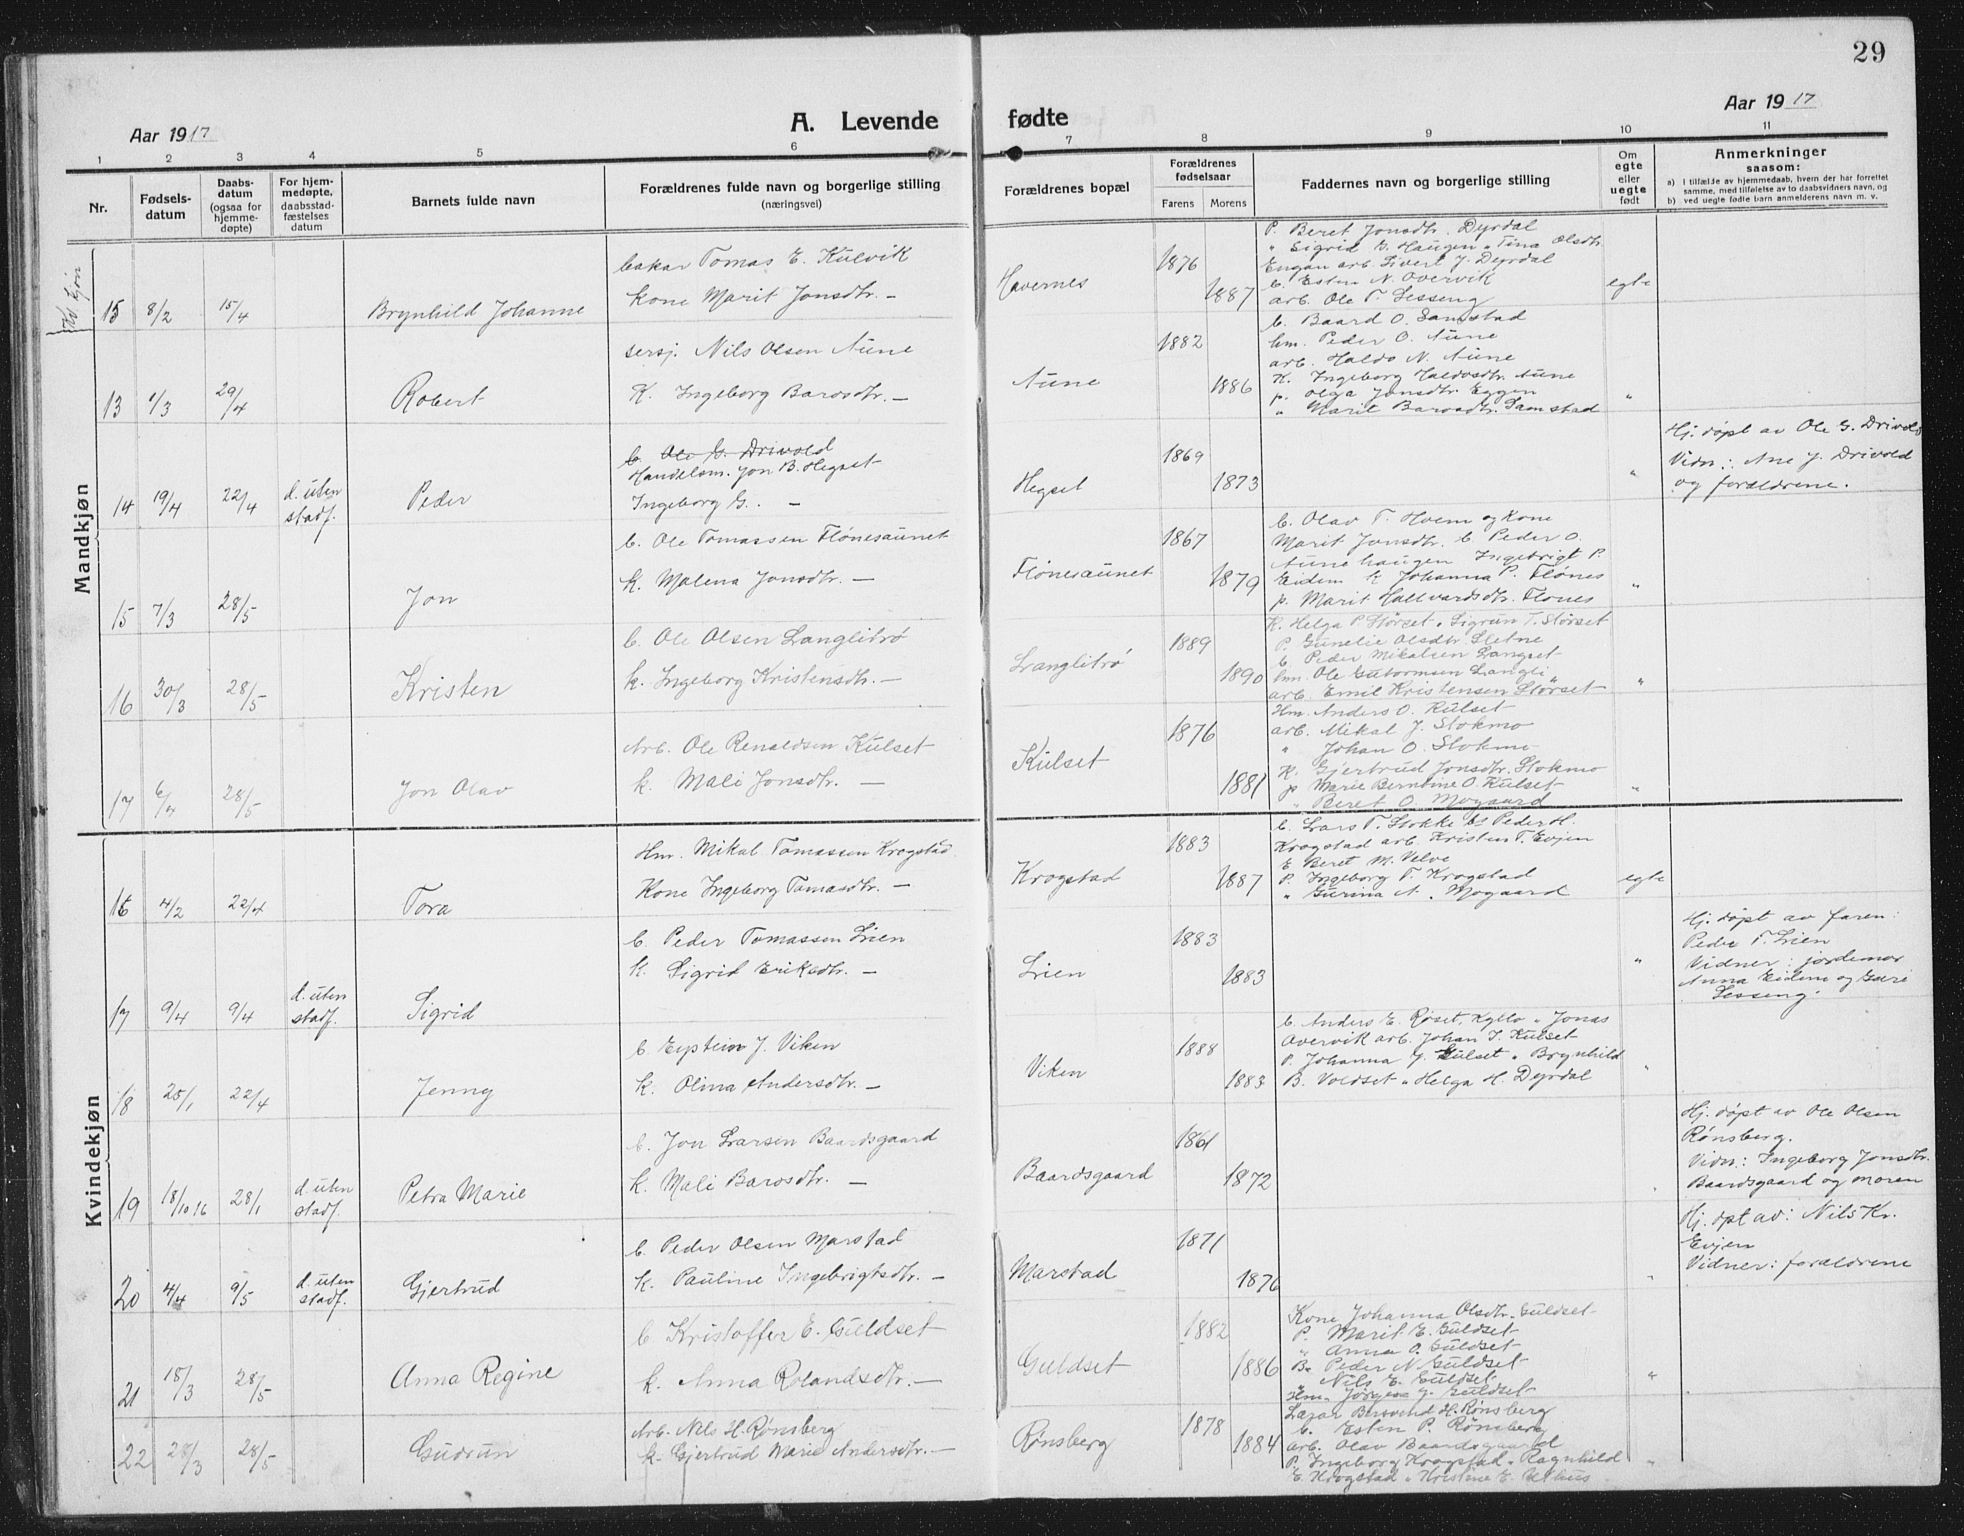 29
Aar 1917
A. Levende
fødte
Aar 1917
1 2 3 4 5 6 7 8 9 10 11
Nr.
Fødsels-
datum
Daabs-
datum
(ogsaa for
hjemme-
døpte)
For hjem-
medøpte,
daabsstad-
fæstelses
datum
Barnets fulde navn
Forældrenes fulde navn og borgerlige stilling
(næringsvei)
Forældrenes bopæl
Forældrenes
fødselsaar
Farens Morens
Faddernes navn og borgerlige stilling
Om
egte
eller
uegte
født
Anmerkninger
saasom:
a) I tilfælde av hjemmedaab, hvem der har forrettet
samme, med tilføielse av to daabsvidners navn, og
b) ved uegte fødte barn anmelderens navn m. v.
Kv. kjøn
15 8/2 15/4 Brynhild Johanne
Tomas E. Kulvik
Kone Marit Jonsdtr. —
Havernes
1876
1887
P. Beret Jonsdtr. Dyrdal
" Sigrid E. Haugen " Tina Olsdtr.
Engan arb. Sivert J. Dyrdal
b. Esten N. Overvik
arb. Ole T. Sesseng
egte
Mandkjøn
13 1/3 29/4 Robert
Nils Olsen Aune
K. Ingeborg Barosdtr. —
Aune
1882
1886
b. Baard O. Samstad
hm. Peder O. Aune
arb. Haldo N. Aune
K. Ingeborg Haldosdtr. Aune
p. Olga Jonsdtr. Eggen
" Marit Barosdtr. Samstad
"
14 19/4 22/4 d. uten
stadf.
Peder
b. Ole G. Drivold
Handelsm. Jon B. Hegset
Ingeborg G. —
Hegset
1869
1873
"
Hj. døpt av Ole G. Drivold
Vidn: Ane J. Drivold
og forældrene.
15 7/3 28/5 Jon
b. Ole Tomassen Flønesaunet
K. Malena Jonsdtr. —
Flønesaunet
1867
1879
b. Olav T. Hvem og Kone
Marit Jonsdtr. b. Peder O.
Aunehaugen Ingebrigt P.
Eidem k Johanna P. Flønes
p. Marit Hallvardsdtr. Flønes
"
16 30/3 28/5 Kristen
b. Ole Olsen Langlitrø
k. Ingeborg Kristensdtr. —
Langlitrø
1889
1890
K. Helga P. Størset " Sigrun T. Størset
P. Gunelie Olsdtr. Sletne
b. Peder Mikalsen Langset
hm. Ole Gutormsen Langli
arb. Emil Kristensen Størset
"
17 6/4 28/5 Jon Olav
Arb. Ole Renaldsen Kulset
k. Mali Jonsdtr. —
Kulset
1876
1881
Hm. Anders O. Kulset
arb. Mikal J. Stokmo
" Johan O. Stokmo
K. Gjertrud Jonsdtr. Stokmo
p Marie Berntine O. Kulset
" Beret O. Mogaard
"
Kvindekjøn
16 4/2 22/4 Tora
Hm. Mikal Tomassen Krogstad
Kone Ingeborg Tomasdtr. —
Krogstad
1883
1887
b. Lars T. Stokke b Peder H.
Krogstad arb. Kristen T. Evjen
E Beret M. Velve
P. Ingeborg T. Krogstad
" Gurina A. Mogaard
egte
17 9/4 9/4 d. uten
stadf.
Sigrid
b. Peder Tomassen Lien
K. Sigrid Eriksdtr. —
Lien
1883
1883
"
Hj. døpt av faren:
Peder T. Lien
Vidner: jordemor
Anna Eidem og Guri
Sesseng.
18 25/1 22/4 Jenny
b. Eystein J. Viken
K. Olina Andersdtr. —
Viken
1888
1883
b Anders E. Røset, Kyllo " Jonas
Overvik arb. Johan J. Kulset
P. Johanna J. Gulset " Brynhild
B. Voldset " Helga H. Dyrdal
"
19 18/10 16 28/1 d. uten
stadf.
Petra Marie
b. Jon Larsen Baardsgaard
K. Mali Barosdtr. —
Baardsgaard
1861
1872
"
Hj. døpt av Ole Olsen
Rønsberg.
Vidn: Ingeborg Jonsdtr.
Baardsgaard og moren
20 4/4 9/5 d. uten
stadf.
Gjertrud
b. Peder Olsen Marstad
k. Pauline Ingebrigtsdtr. —
Marstad
1871
1876
"
Hj. dpt av: Nils Kr.
Evjen
Vidner: forældrene
21 18/3 28/5 Anna Regine
b. Kristoffer E. Guldset
k. Anna Rolandsdtr. —
Guldset
1882
1886
Kone Johanna Olsdtr. Guldset
P. Marit E. Guldset
" Anna O. Guldset
B. Peder N Guldset
" Nils E. Guldset
Hm. Jørgen J. Guldset
"
22 28/3 28/5 Gudrun
Arb. Nils H. Rønsberg
k. Gjertrud Marie Andersdtr. —
Rønsberg
1878
1884
Bersvend H. Rønsberg
b. Esten P. Rønsberg
arb. Olav Baardsgaard
P. Ingeborg Krogstad " Ragnhild
E. Krogstad " Kristine E. Uthus
"